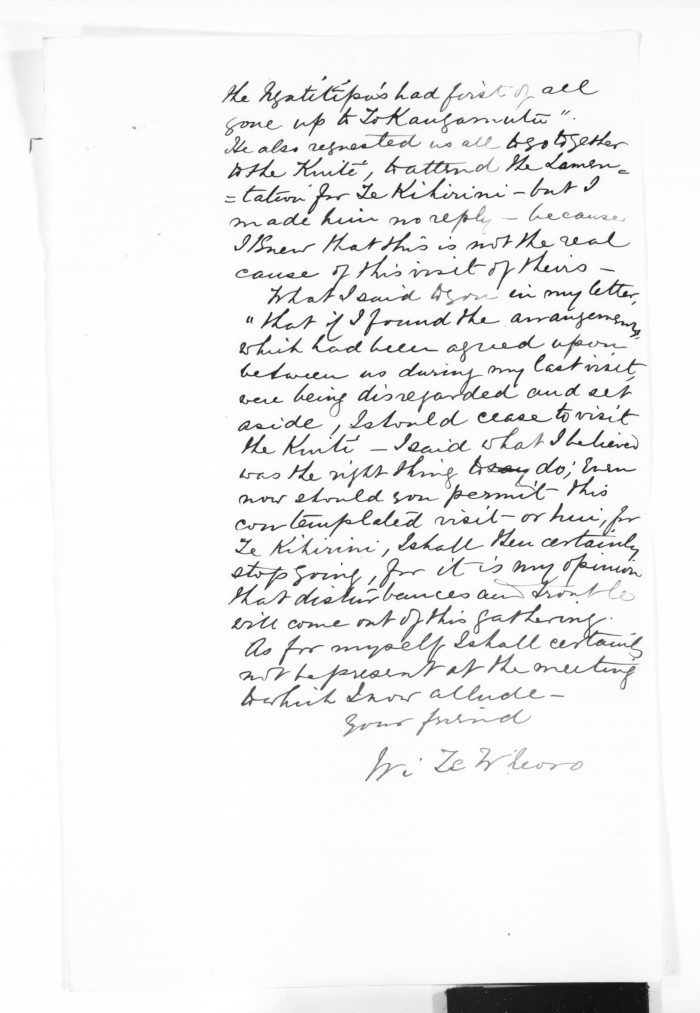 the Ngatitipa's had first of all
gone up to To Kangamutu".
He also requested us all to go together
to the Kuiti, to attend the Lamen=
=tation for Te Kihirini – but I
made him no reply – because
I Knew that this is not the real
cause of this visit of theirs –
What I said to you in my letter,
"that if I found the arrangements
which had been agreed upon
between us during my last visit,
were being disregarded and set
aside, I should cease to visit
the Kuiti – I said what I believed
was the right thing to say do; Even
now should you permit this
contemplated visit – or hui, for
Te Kihirini, I shall then certainly
stop going, for it is my opinion
that disturbances and trouble
will come out of this gathering.
As for myself I shall certainly
not be present at the meeting
to which I now allude –
Your friend
Wi Te Wheoro